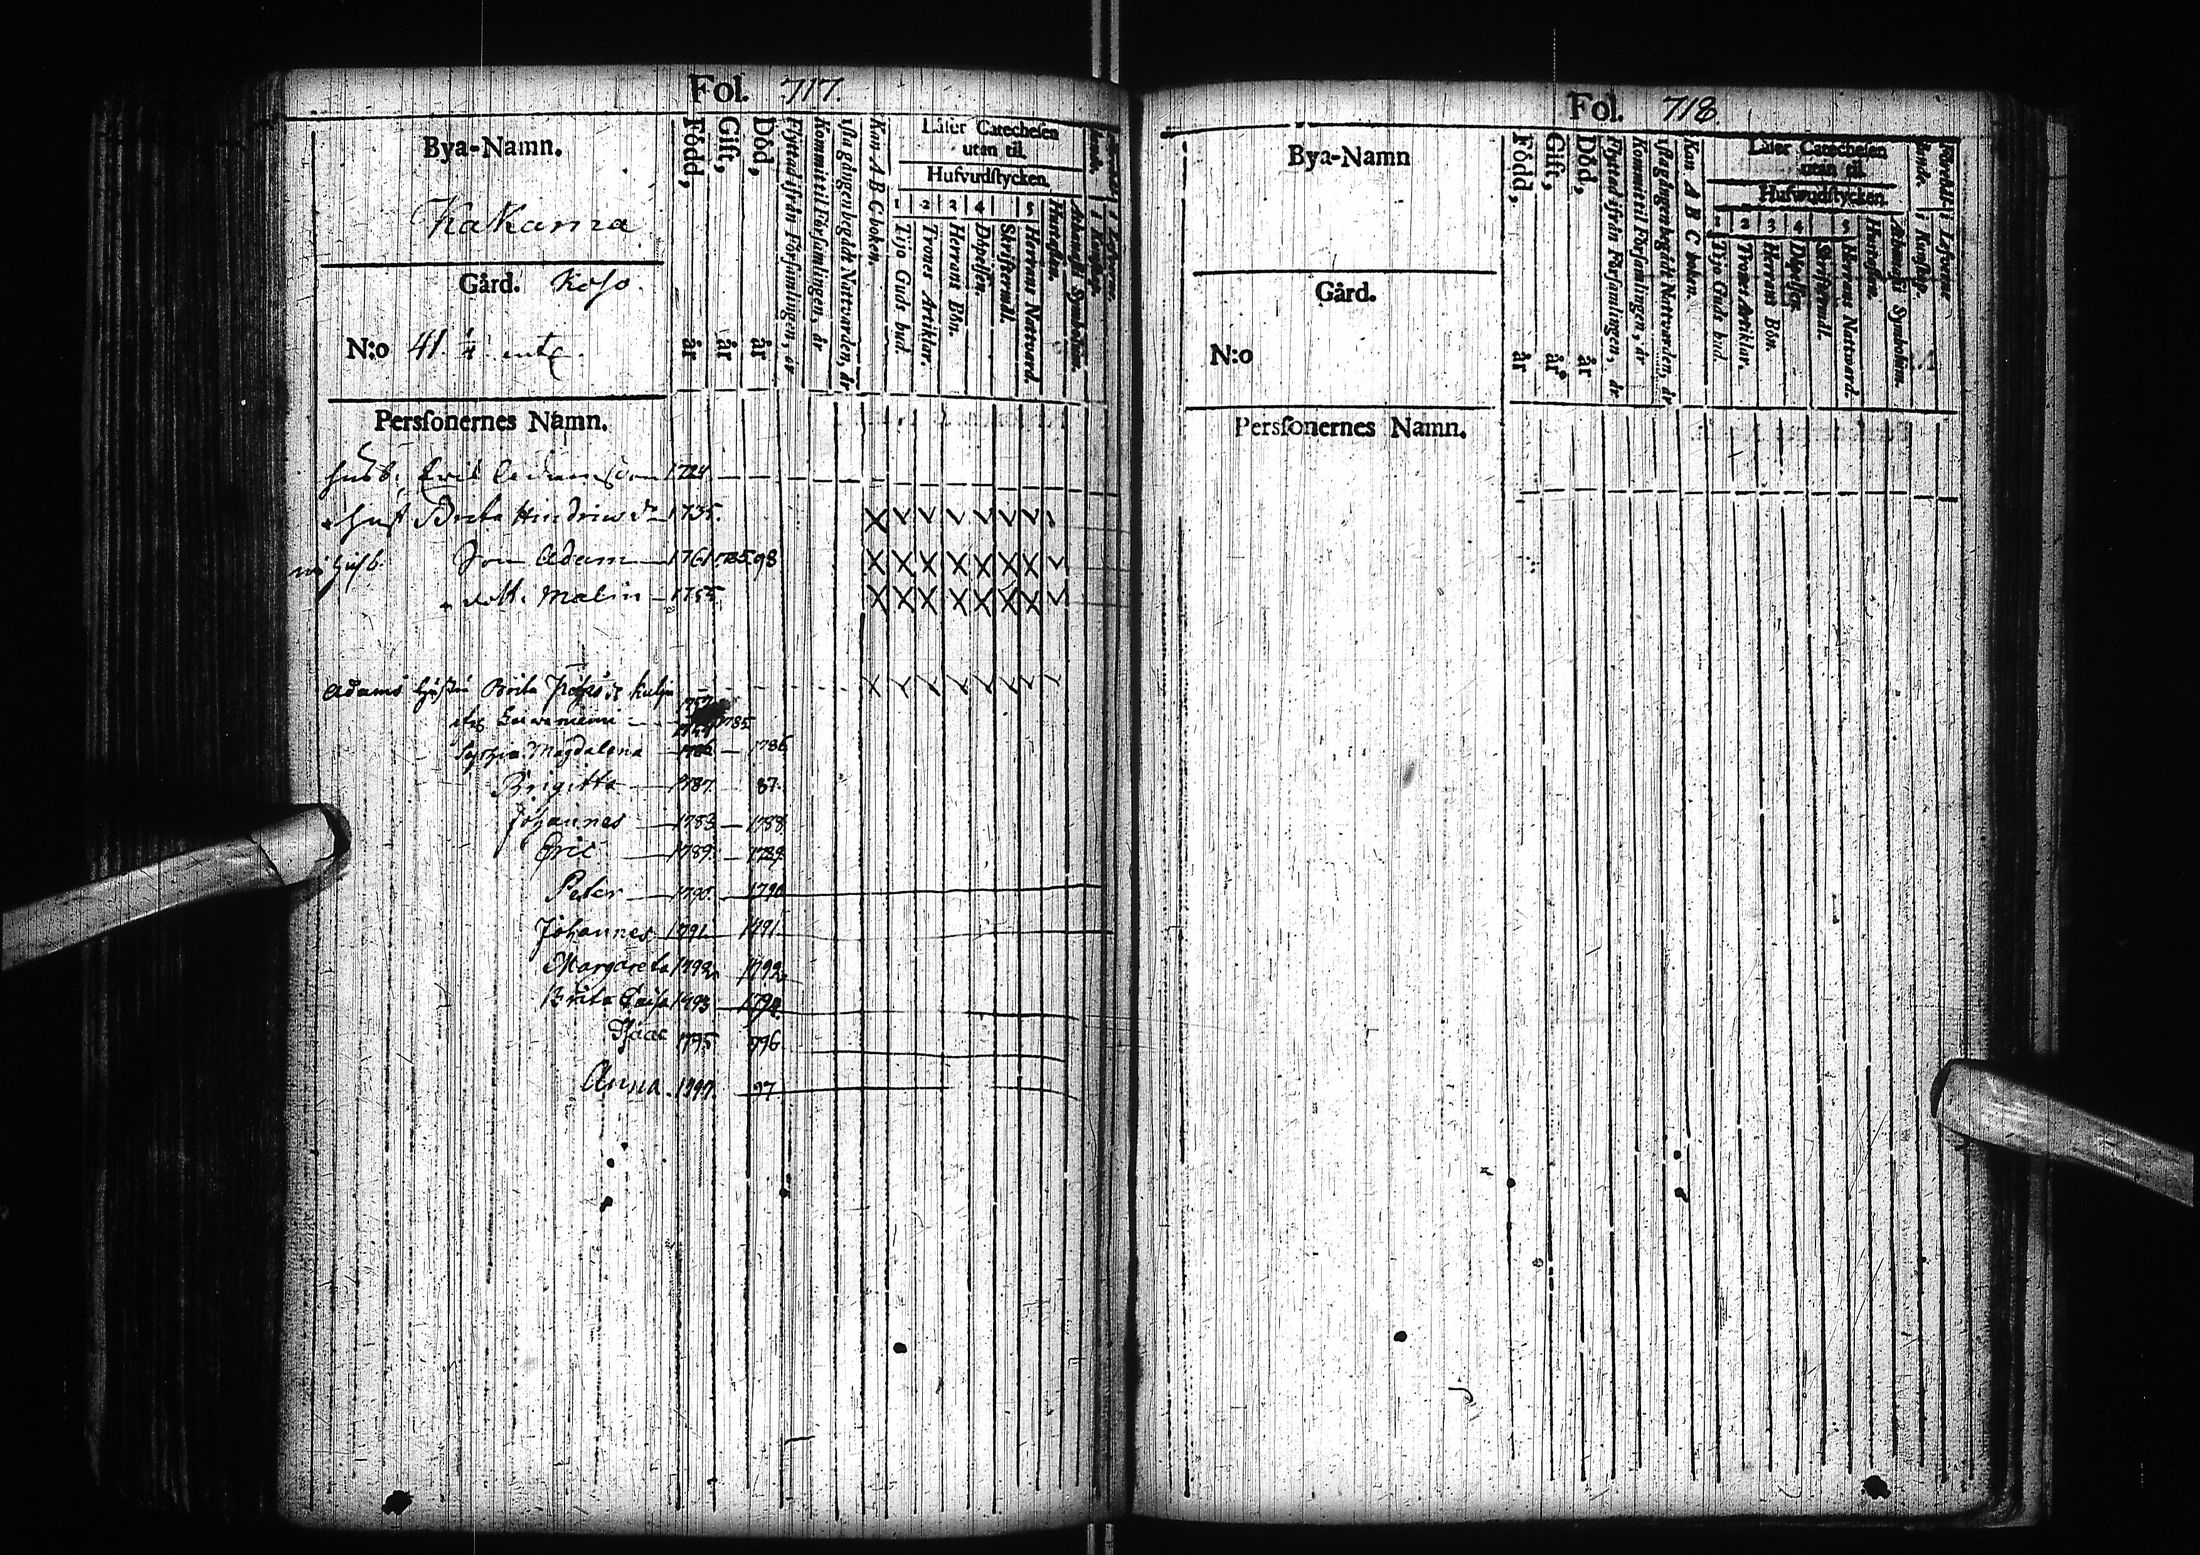 Fol. 717.
Bya-Namn.
Kakama
Gård. Koso.
N:o 41. 1/4
Född, år
Gift, år
Död, år
Flyttad ifrån Församlingen, år
Kommit til Församlingen, år
1sta gången begådt Nattvarden, år
Kan A B C boken.
Läser Catechesen
utan til.
Hufvudstycken.
1 2 3 4 5
Tijo Guds bud.
Trones Artiklar.
Herrans Bön.
Döpelsen.
Skriftermål.
Herrans Nattvard.
Hustaflan.
Athanasii Symbolum.
Personernes Namn.
husb. Eric Adamsson 1724
hust Brita Hindricsdr 1735.
Son Adam 1761. 785. 98
dott. Malin 1755
Adams hustru Brita
1785
Magdalena 1786 1786
Brigitta 1787. 87.
Johannes 1783 1788
Eric 1789. 1789
Peter 1790. 1790
Johannes 1791 1791
Margareta 1792 1792
Brita Caisa 1793 1794
Isaac 1795 796
Anna 1797. 97
Fol. 718
Bya-Namn
Gård.
N:o
Född, år
Gift, år
Död, år
Flyttad ifrån Församlingen, år
Kommit til Församlingen, år
1sta gången begådt Nattvarden, år
Kan A B C boken.
Läser Catechesen
utan til.
Hufwudstycken.
1 2 3 4 5
Tijo Guds bud.
Trones Artiklar.
Herrans Bön.
Döpelsen.
Skriftermål.
Herrans Nattward.
Hustaflan.
Athanasii Symbolum.
Personernes Namn.